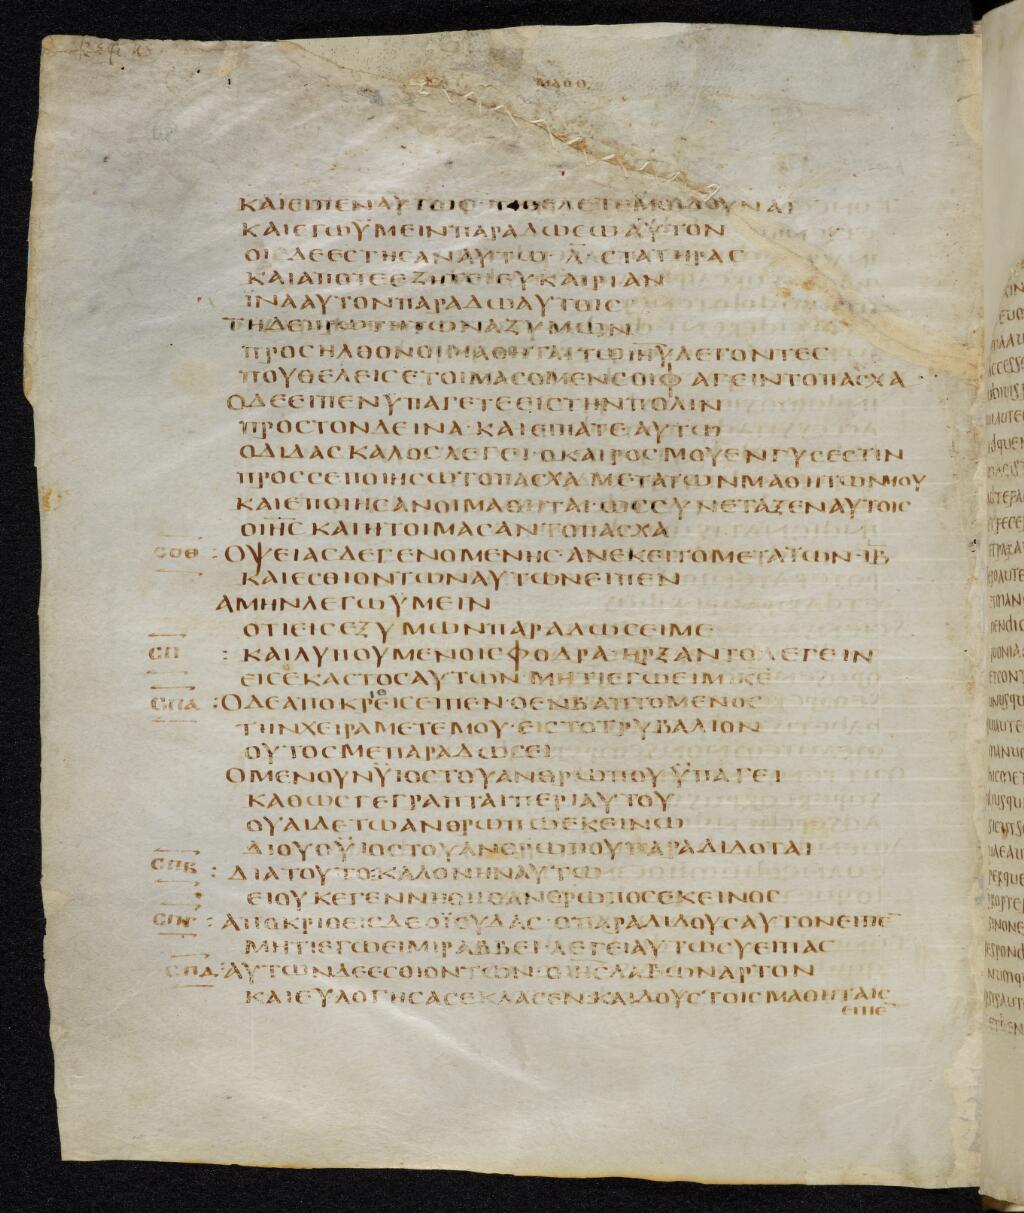 ΜΑΘΘ
ΚΑΙΕΙΠΕΝΑΥΤΟΙΣ ΤΙΘΕΛΕΤΕΜΟΙΔΟΥΝΑΙ
ΚΑΙΕΓΩΫΜΕΙΝΠΑΡΑΔΩΣΩΑΥΤΟΝ
ΟΙΔΕΕΣΤΗΣΑΝΑΥΤΩ·Λ̅·ΣΤΑΤΗΡΑΣ
ΚΑΙΑΠΟΤΕΕΖΗΤΕΙΕΥΚΑΙΡΙΑΝ
ΙΝΑΑΥΤΟΝΠΑΡΑΔΩΑΥΤΟΙΣ
ΤΗΔΕΠΡΩΤΗΤΩΝΑΖΥΜΩΝ
ΠΡΟΣΗΛΘΟΝΟΙΜΑΘΗΤΑΙΤΩΙΗΥΛΕΓΟΝΤΕΣ
ΠΟΥΘΕΛΕΙΣΕΤΟΙΜΑΣΟΜΕΝΣΟΙΦΑΓΕΙΝΤΟΠΑΣΧΑ
ΟΔΕΕΙΠΕΝΥΠΑΓΕΤΕΕΙΣΤΗΝΠΟΛΙΝ
ΠΡΟΣΤΟΝΔΕΙΝΑ·ΚΑΙΕΙΠΑΤΕΑΥΤΩ
ΟΔΙΔΑΣΚΑΛΟΣΛΕΓΕΙ·ΟΚΑΙΡΟΣΜΟΥΕΝΓΥΣΕΣΤΙΝ
ΠΡΟΣΣΕΠΟΙΗΣΩΤΟΠΑΣΧΑΜΕΤΑΤΩΝΜΑΘΗΤΩΝΜΟΥ
ΚΑΙΕΠΟΙΗΣΑΝΟΙΜΑΘΗΤΑΙ·ΩΣΣΥΝΕΤΑΞΕΝΑΥΤΟΙΣ
ΟΙΗΣΚΑΙΗΤΟΙΜΑΣΑΝΤΟΠΑΣΧΑ
ΣΟΘ : ΟΨΕΙΑΣΔΕΓΕΝΟΜΕΝΗΣ·ΑΝΕΚΕΙΤΟΜΕΤΑΤΩΝ·ΙΒ
ΚΑΙΕΣΘΙΟΝΤΩΝΑΥΤΩΝΕΙΠΕΝ
ΑΜΗΝΛΕΓΩΫΜΕΙΝ
ΟΤΙΕΙΣΕΞΥΜΩΝΠΑΡΑΔΩΣΕΙΜΕ
ΣΠ : ΚΑΙΛΥΠΟΥΜΕΝΟΙΣΦΟΔΡΑ·ΗΡΞΑΝΤΟΛΕΓΕΙΝ
ΕΙΣΕΚΑΣΤΟΣΑΥΤΩΝ·ΜΗΤΙΕΓΩΕΙΜΙΚΕ
ΣΠΑ : ΟΔΕΑΠΟΚΡΙΘΕΙΣΕΙΠΕΝ·ΟΕΝΒΑΠΤΟΜΕΝΟΣ
ΤΗΝΧΕΙΡΑΜΕΤΕΜΟΥ·ΕΙΣΤΟΤΡΥΒΑΛΙΟΝ
ΟΥΤΟΣΜΕΠΑΡΑΔΩΣΕΙ
ΟΜΕΝΟΥΝΫΙΟΣΤΟΥΑΝΘΡΩΠΟΥΫΠΑΓΕΙ
ΚΑΘΩΣΓΕΓΡΑΠΤΑΙΠΕΡΙΑΥΤΟΥ
ΟΥΑΙΔΕΤΩΑΝΘΡΩΠΩΕΚΕΙΝΩ
ΔΙΟΥΟΫΙΟΣΤΟΥΑΝΘΡΩΠΟΥΠΑΡΑΔΙΔΟΤΑΙ
ΣΠΒ : ΔΙΑΤΟΥΤΟ·ΚΑΛΟΝΗΝΑΥΤΩ
ΕΙΟΥΚΕΓΕΝΝΗΘΗΟΑΝΘΡΩΠΟΣΕΚΕΙΝΟΣ
ΣΠΓ : ΑΠΟΚΡΙΘΕΙΣΔΕΟΪΟΥΔΑΣ·ΟΠΑΡΑΔΙΔΟΥΣΑΥΤΟΝΕΙΠΕ̅
ΜΗΤΙΕΓΩΕΙΜΙΡΑΒΒΕΙ·ΛΕΓΕΙΑΥΤΩΣΥΕΙΠΑΣ
ΣΠΔ : ΑΥΤΩΝΔΕΕΣΘΙΟΝΤΩΝ·ΟΙΗΣΛΑΒΩΝΑΡΤΟΝ
ΚΑΙΕΥΛΟΓΗΣΑΣΕΚΛΑΣΕΝ·ΚΑΙΔΟΥΣΤΟΙΣΜΑΘΗΤΑΙΣ
ΕΙΠΕ